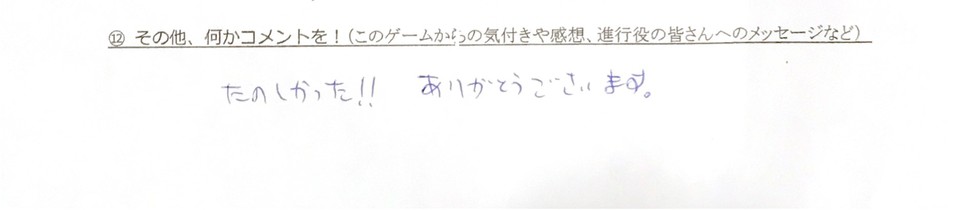 ⑫ その他、何かコメントを！(このゲームからの気付きや感想、進行役の皆さんへのメッセージなど)
たのしかった!! ありがとうございます。